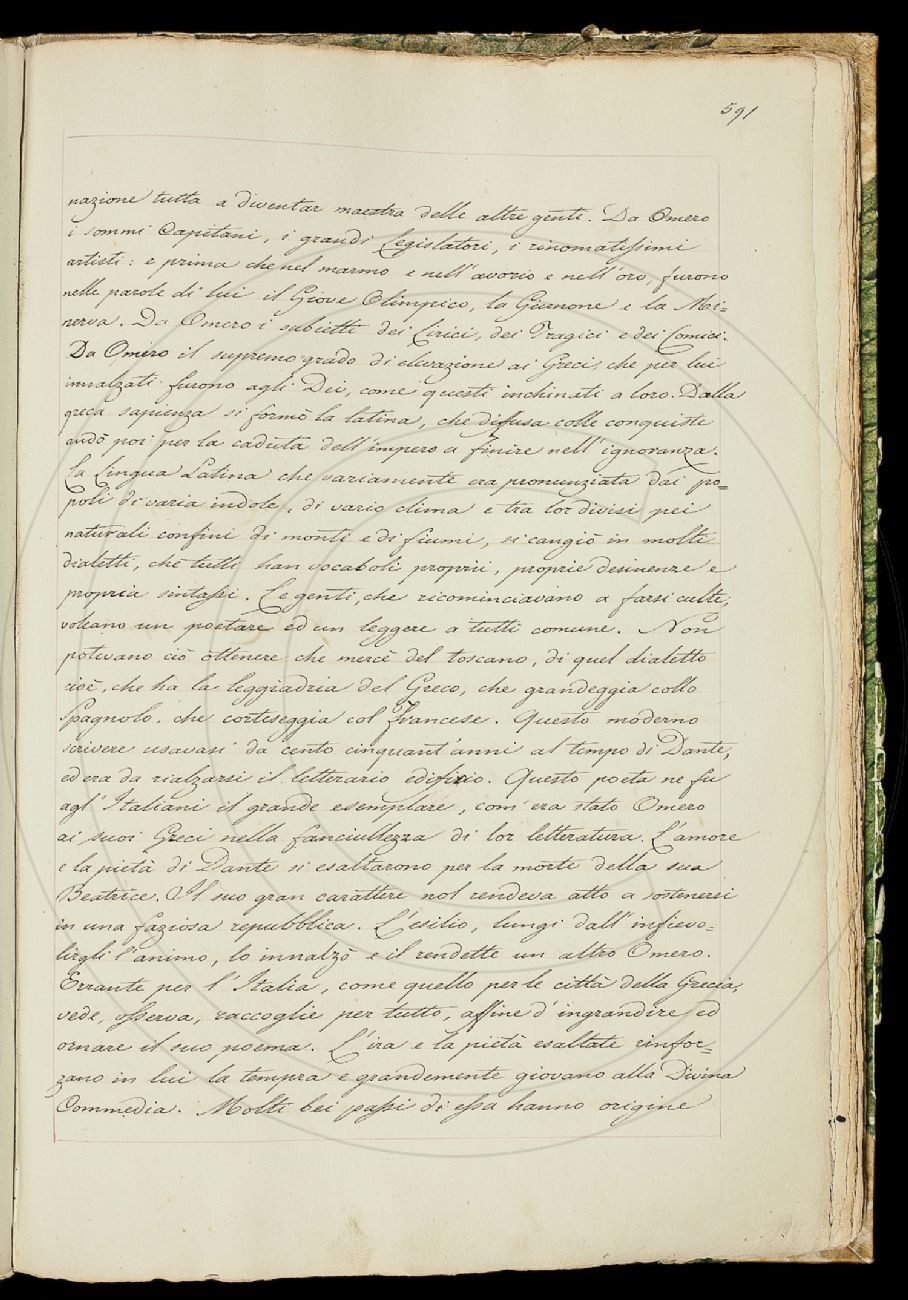 591
nazione tutta a diventar maestra delle altre genti. Da Omero
i sommi Capitani, i grandi Legislatori, i rinomatissimi
artisti: e prima che nel marmo e nell'avorio e nell'oro, furono
nelle parole di lui il Giove Olimpico, la Giunone e la Mi=
nerva. Da Omero i subietti dei Lirici, dei Tragici e dei Comici.
Da Omero il supremo grado di elevazione ai Greci, che per lui
innalzati furono agli Dei, come questi inchinati a loro. Dalla
greca sapienza si formò la latina, che diffusa colle conquiste
andò poi per la caduta dell'impero a finire nell'ignoranza.
La Lingua Latina che variamente era pronunziata dai po=
poli di varia indole, di vario clima e tra lor divisi pei
naturali confini di monti e di fiumi, si cangiò in molti
dialetti, che tutti han vocaboli proprii, proprie desinenze e
propria sintassi. Le genti, che ricominciavano a farsi culte,
voleano un poetare ed un leggere a tutti comune. Non
potevano ciò ottenere che mercè del toscano, di quel dialetto
cioè, che ha la leggiadria del Greco, che grandeggia collo
Spagnolo, che corteseggia col Francese. Questo moderno
scrivere usavasi da cento cinquant'anni al tempo di Dante,
ed era da rialzarsi il letterario edificio. Questo poeta ne fu
agl'Italiani il grande esemplare, com'era stato Omero
ai suoi Greci nella fanciullezza di lor letteratura. L'amore
e la pietà di Dante si esaltarono per la morte della sua
Beatrice. Il suo gran carattere nol rendeva atto a sostenersi
in una faziosa repubblica. L'esilio, lungi dall'infievo=
lirgli l'animo, lo innalzò e il rendette un altro Omero.
Errante per l'Italia, come quello per le città della Grecia,
vede, osserva, raccoglie per tutto, affine d'ingrandire ed
ornare il suo poema. L'ira e la pietà esaltate rinfor=
zano in lui la tempra e grandemente giovano alla Divina
Commedia. Molti bei passi di essa hanno origine